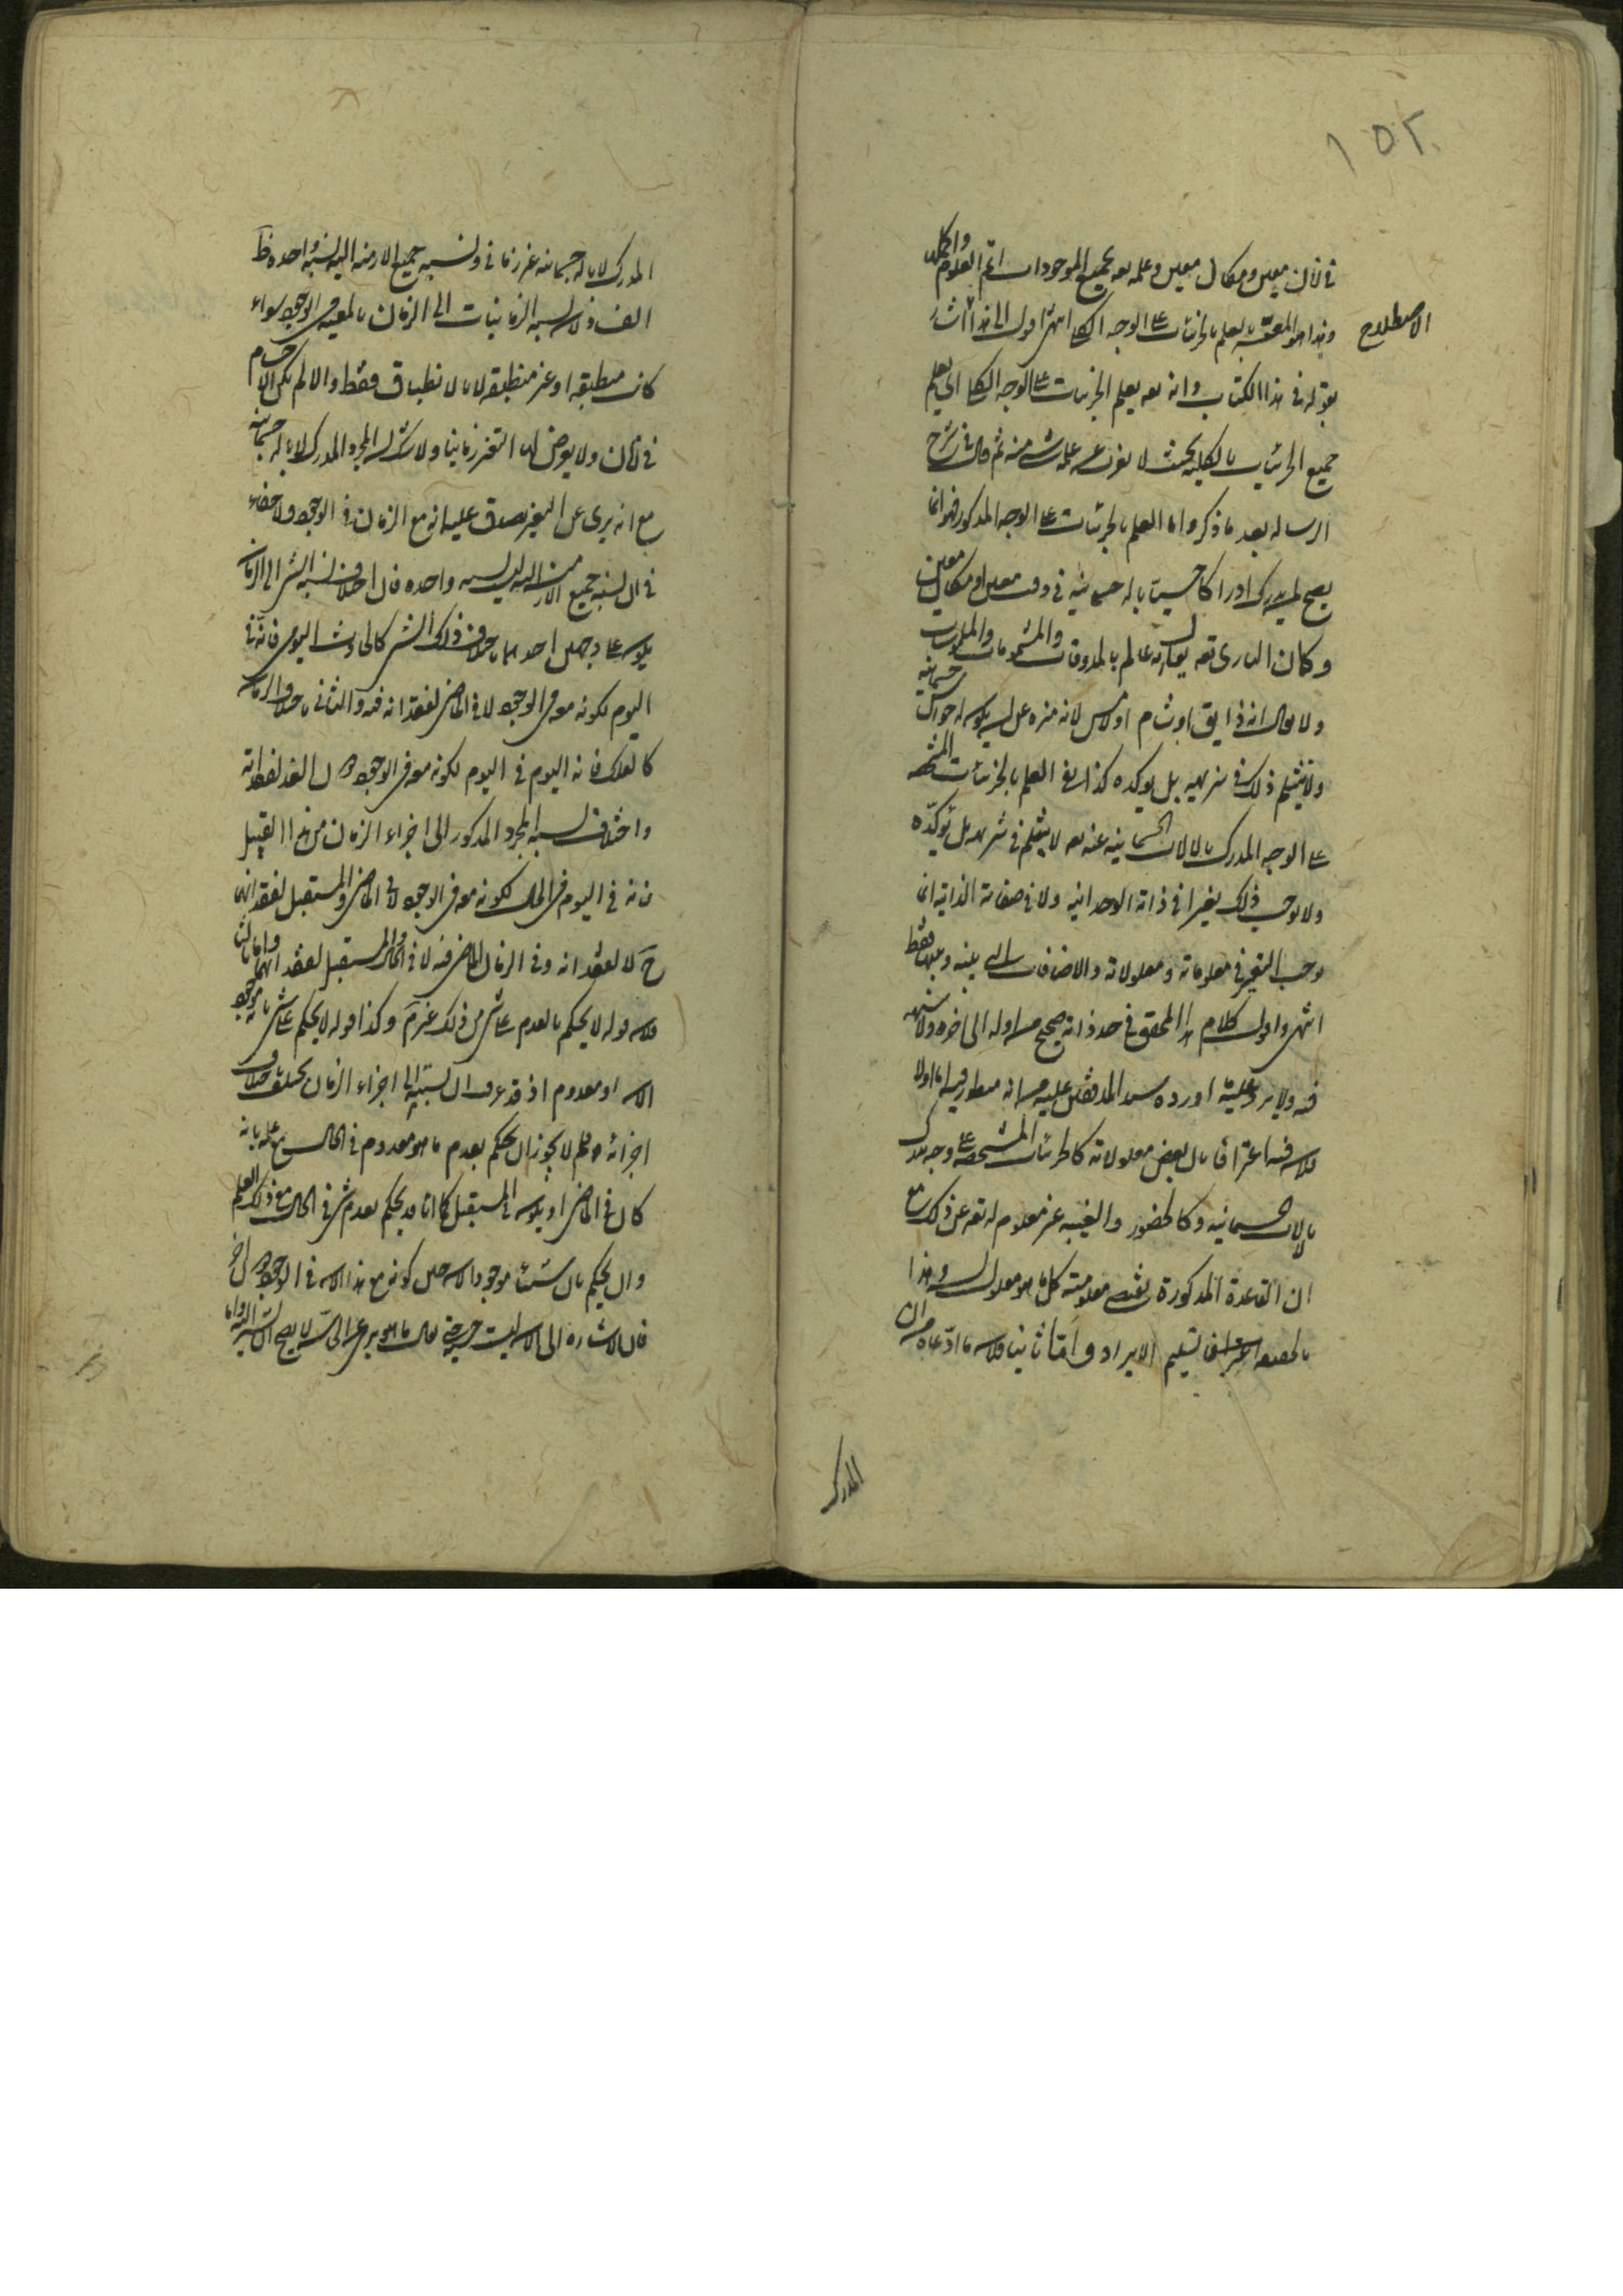 ١٥٢
في زمان معين ومكان معين وعلمه تعه بجميع الموجودات اتم العلوم واكملها
وهذا هو المعبر به بعلم بالجزئيات على الوجه الكلي انتهى اقول الى هذا اشار
الاصطلاح
بقوله في هذا الكتاب وانه تعه يعلم الجزئيات على الوجه الكلي اي يعلم
جميع الجزئيات بالكليه بحيث لا يعزب عن علمه شيء منه ثم قال في شرح
الرساله بعد ما ذكر واما العلم بالجزئيات على الوجه المذكور فهو انما
يصح لمن يدرك ادراكا حسيا باله جسمانيه في وقت معين او مكان معين
وكما ان الباري تعه يقال انه عالم بالمذوقات والمشمومات والملموسات
ولا يقال انه ذايق او شام او لامس لانه منزه عن ان يكون له حواس جسمانيه
ولا ينثلم ذلك في تنزيهه بل يوكده كذا نفي العلم بالجزئيات المشخصه
على الوجه المدرك بالالات الجسمانيه عنه تعه لا ينثلم في تنزيهه بل يؤكده
ولا يوجب ذلك تغيرا في ذاته الوحدانيه ولا في صفاته الذاتيه انما
يوجب التغير في معلوماته ومعلولاته والاضافات التي بينه وبينها فقط
انتهى واقول كلام هذا المحقق في حد ذاته صحيح من اوله الى اخره ولا شبهه
فيه ولا يرد عليه ما اورده سيد المدققين عليه مما انه منظور فيه اما اولا
فلان فيه اعترافا بان بعض معلولاته كالجزئيات المشخصه على وجه يدرك
بالالات الجسمانيه وكالحضور والغيبه غير معلوم له تعه عن ذلك مع
ان القاعدة المذكورة يقتضي معلوميته كل ما هو معلول له وهذا
بالحقيقه اعتراف بتسليم الايراد واما ثانيا فلان ما ادعاه من ان
المدرك
المدرك لا باله جسمانيه غير زماني ونسبه جميع الازمنه اليه نسبه واحده ظ
الفساد لان نسبه الزمانيات الى الزمان بالمعيه في الوجود سواء
كانت منطبقه او غير منطبقه لا بالانطباق فقط والا لم يكن الاجسام
في زمان ولا يعرض لها التغير زمانيا ولا شك ان المجرد المدرك لا باله جسمانيه
مع انه بري عن التغير يصدق عليه انه مع الزمان في الوجود ولا خفاء
في ان نسبه جميع الازمنه اليه ليست واحده فان اختلاف نسبه الشيء الى الزمان
يكون على وجهين احدهما باختلاف ذلك الشيء كالحادث اليومي فانه في
اليوم لكونه معه في الوجود لا في الماضي لفقدانه فيه والثاني باختلاف الزمان
كالفلك فانه اليوم في اليوم لكونه معه في الوجود لا في الغد لفقدانه
واختلاف نسبه المجرد المذكور الى اجزاء الزمان من هذا القبيل
فانه في اليوم في الحال لكونه معه في الوجود لا في الماضي والمستقبل لفقدانهما
ح لا لفقدانه وفي الزمان الماضي فيه لا في الحال والمستقبل لفقدانهما واما ثالثا
فلان قوله لا يحكم بالعدم على شيء من ذلك غير تم وكذا قوله لا يحكم على شيء بانه موجود
الان او معدوم اذ قد عرفت ان نسبته الى اجزاء الزمان يختلف باختلاف
اجزائه فلم لا يجوز ان يحكم بعدم ما هو معدوم في الحال مع علمه بانه
كان في الماضي او يكون في المستقبل كما انا قد يحكم بعدم شيء في الحال مع ذلك العلم
وان يحكم بان شيئا موجود الان حين كونه مع هذا الان في الوجود
فان الاشاره الى الان ليست حسيه حتى يقال ما هو بري عن الحس لا يصح ان يشير اليه واما